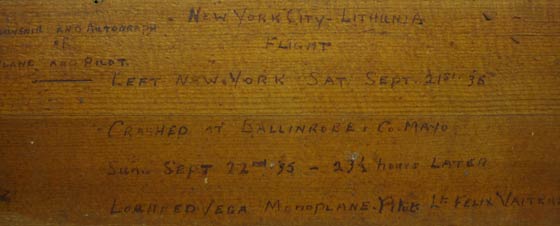 NEW YORK CITY - LITHUNIA
AND AUTOGRAPH
OF
FLIGHT
AND PILOT.
LEFT NEW YORK SAT. SEPT. 21ST. 35
CRASHED AT BALLINROBE, CO. MAYO
SUN. SEPT 22nd 35 - 23½ hours LATER
LOCKHEED VEGA MONOPLANE. LT FELIX